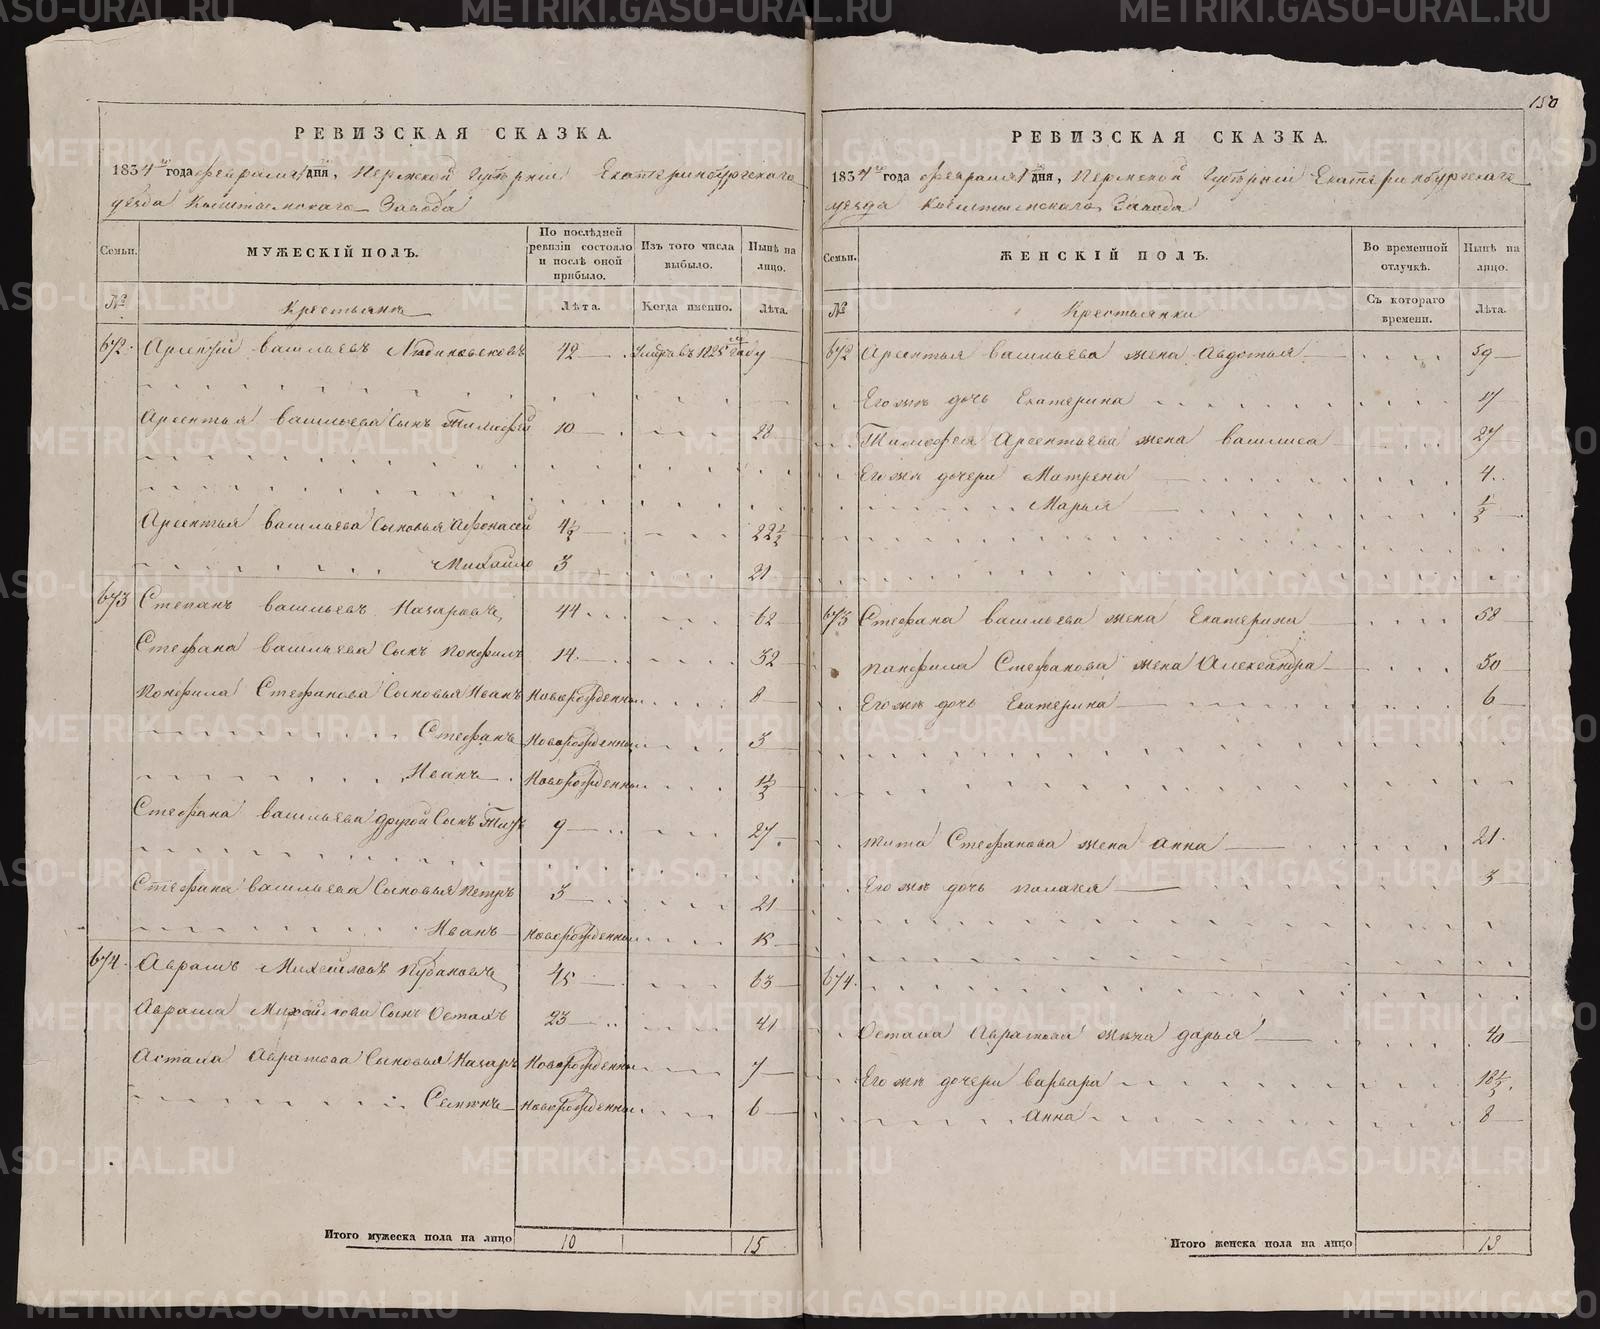 150
РЕВИЗСКАЯ СКАЗКА.
1834 года февраля дня, Пермской Губернии Екатеринбургскаго
уезда Кыштымскаго Завода
Семьи.
МУЖЕСКІЙ ПОЛЪ.
По послѣдней ревизіи состояло и послѣ оной прибыло.
Изъ того числа выбыло.
Нынѣ на лицо.
№
Крестьяне
Лѣта.
Когда именно.
Лѣта.
672. Арсентій Васильевъ 42 Умеръ въ 1825 году
Арсентья Васильева Сынъ Тимофей 10 28
Арсентья Васильева Сыновья Афонасей 4½ 22½
Михайло 3 21
673 Степанъ Васильевъ Назаровъ 44 62
Стефана Васильева Сынъ Понфилъ 14 32
Понфила Стефанова Сыновья Иванъ Новорожденны 8
Стефанъ Новорожденны 3
Иванъ Новорожденны ½
Стефана Васильева другой Сынъ Титъ 9 27
Стефана Васильева Сыновья Петръ 3 21
Иванъ Новорожденны 15
674. Аврамъ Михейловъ 45 63
Аврама Михайлова Сынъ Остахъ 23 41
Астаха Аврамова Сыновья Назаръ Новорожденны 7
Семенъ Новорожденны 6
Итого мужеска пола на лицо 10 15
РЕВИЗСКАЯ СКАЗКА.
1834 года февраля дня, Пермской Губерніи Екатеринбургскаго
уезда Кыштымскаго Завода
Семьи.
ЖЕНСКІЙ ПОЛЪ.
Во временной отлучкѣ.
Нынѣ на лицо.
№
Крестьянки
Съ котораго времени.
Лѣта.
672 Арсентья Васильева жена Авдотья 59
Его же дочь Екатерина 17
Тимофея Арсентьева жена Василиса 27
Его же дочери Матрена 4
Марья ½
673 Стефана Васильева жена Екатерина 58
Панфила Стефанова жена Александра 30
Его же дочь Екатерина 6
Тита Стефанова жена Анна 21
Его же дочь Палагея 3
674.
Остаха Аврамова жена Дарья 40
Его же дочери Варвара 18½
Анна 8
Итого женска пола на лицо 13
METRIKI.GASO-URAL.RU